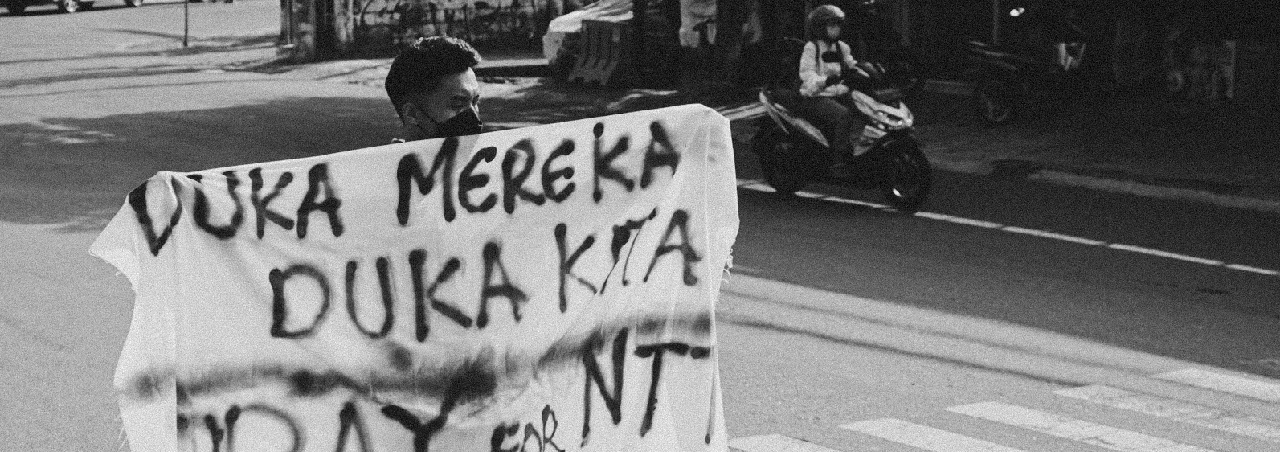 DUKA MEREKA
DUKA KITA
PRAY FOR NT